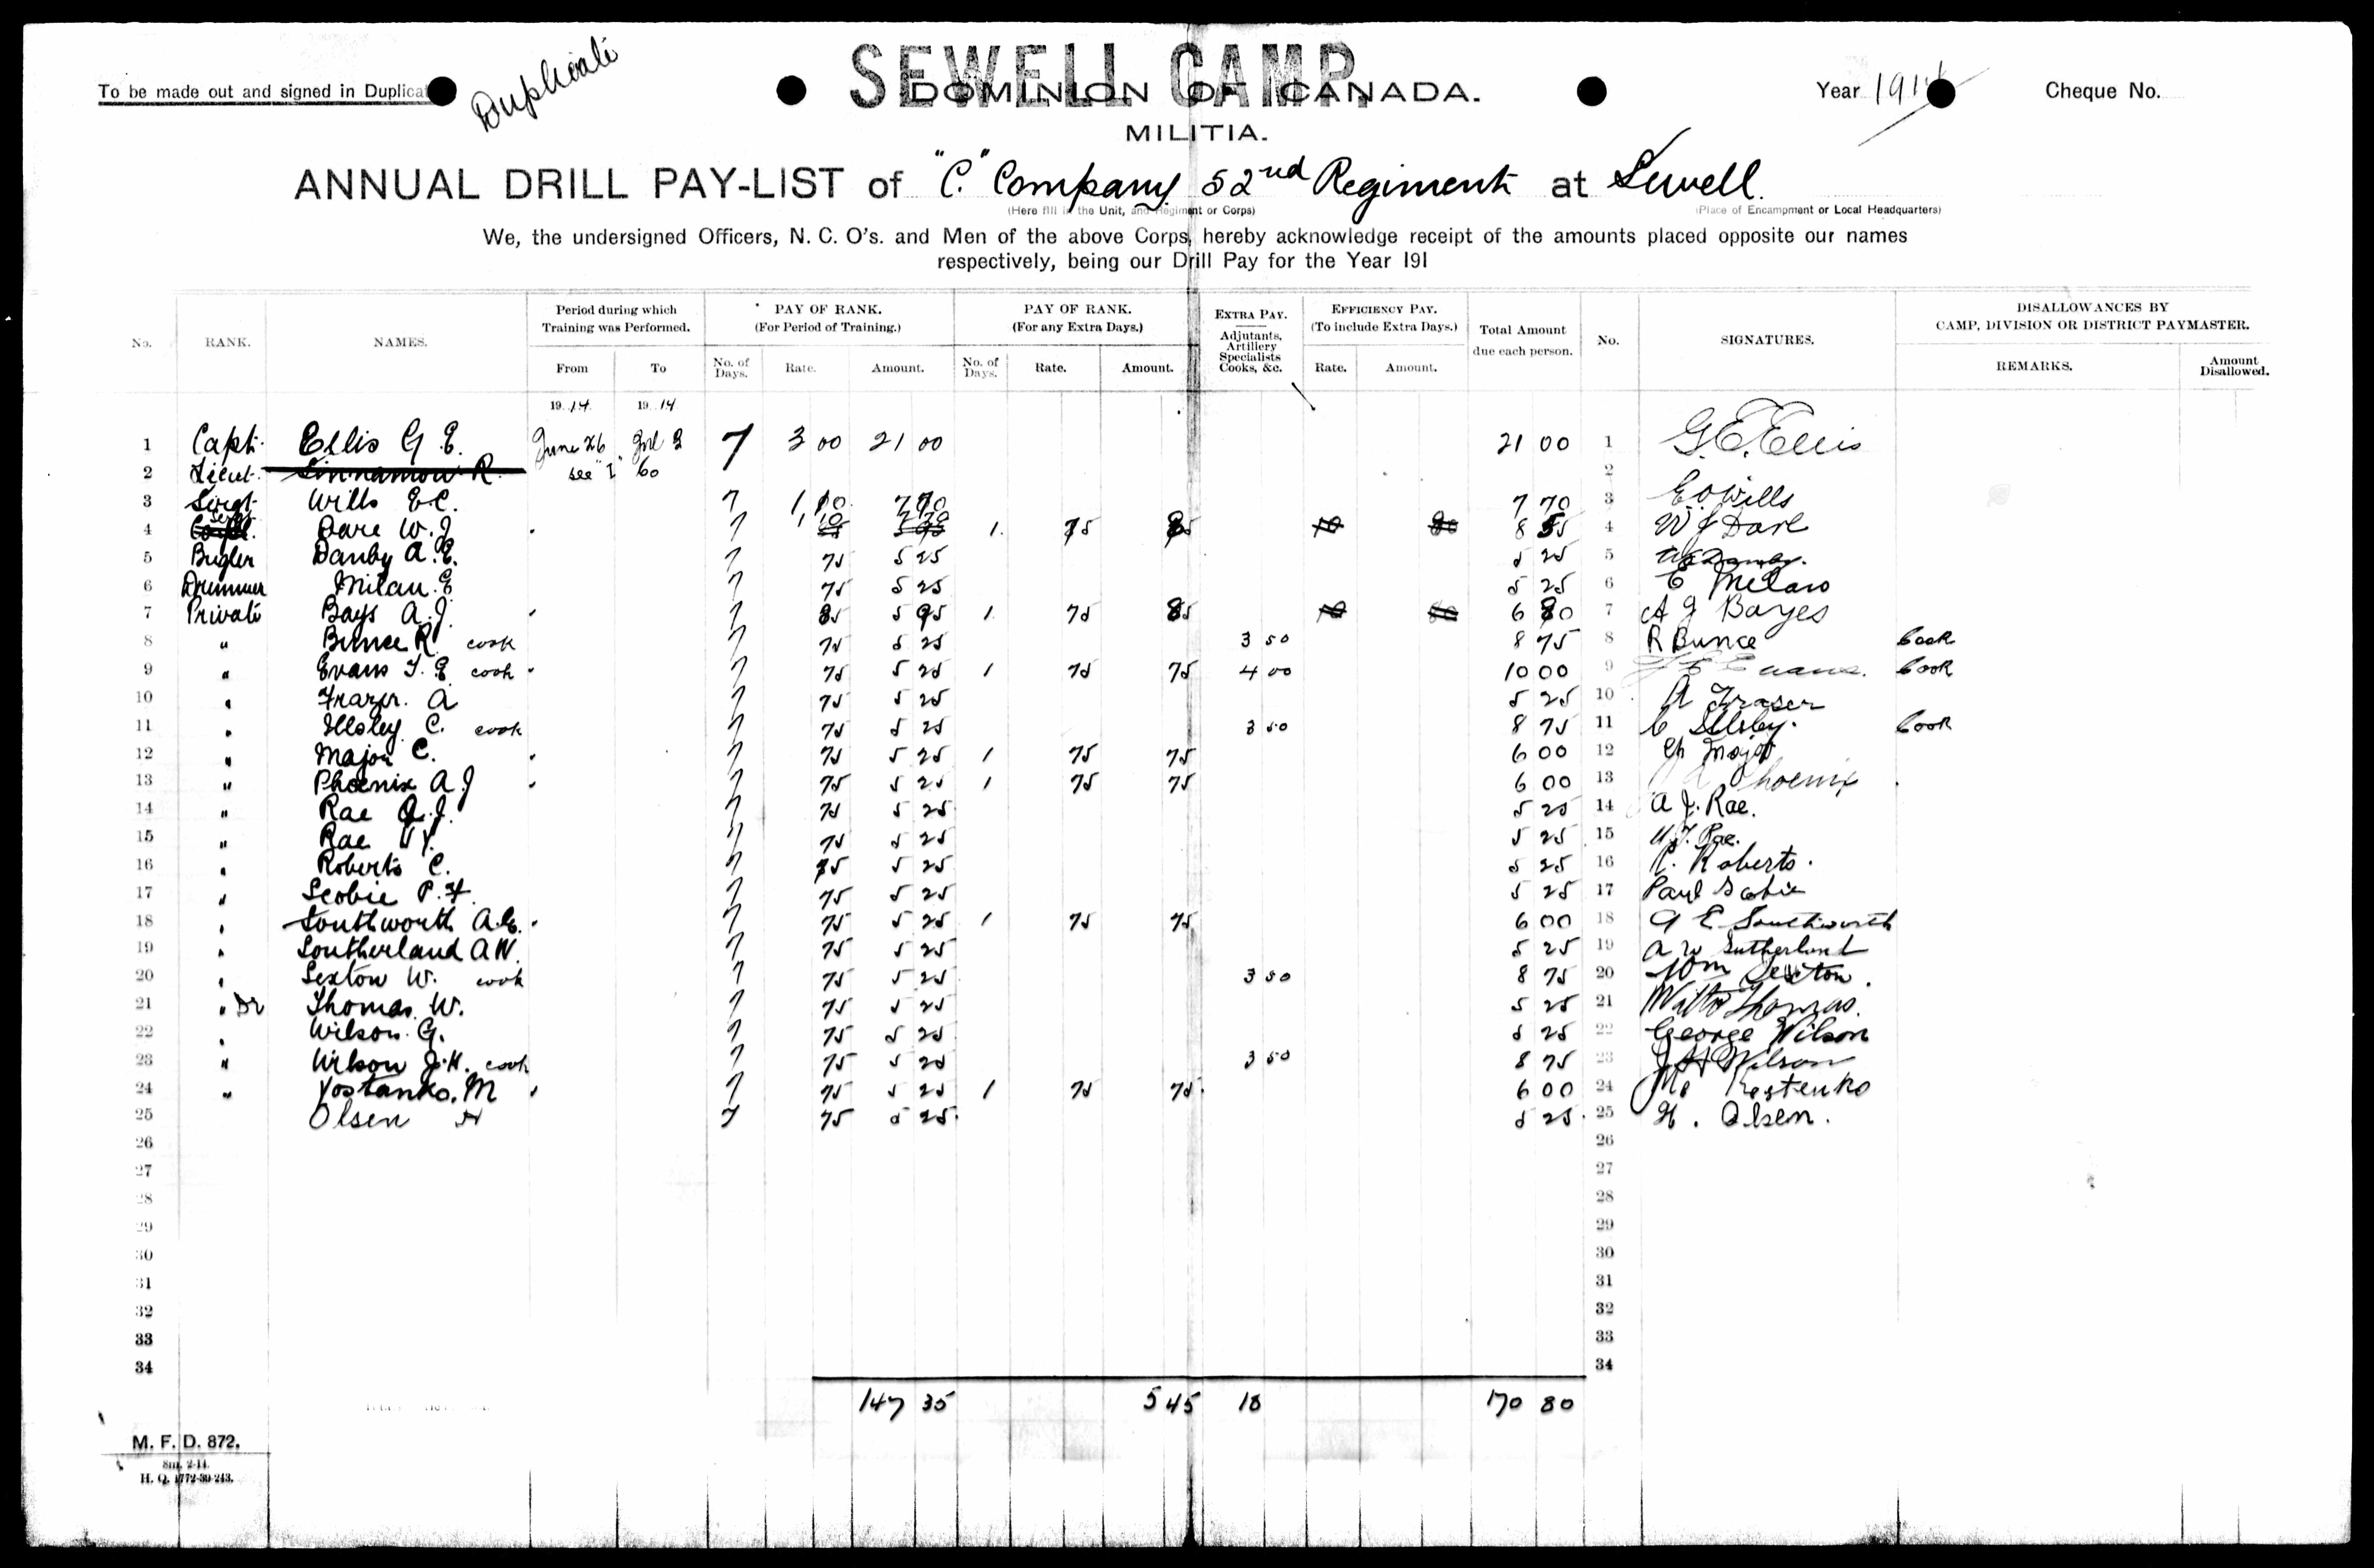 SEWELL CAMP.
To be made out and signed in Duplicat
Duplicate
DOMINION OF CANADA.
Year 1914
Cheque No.
MILITIA.
ANNUAL DRILL PAY-LIST of "C." Company 52nd Regiment at Sewell.
(Here fill in the Unit, and Regiment or Corps) (Place of Encampment or Local Headquarters)
We, the undersigned Officers, N. C. O's. and Men of the above Corps, hereby acknowledge receipt of the amounts placed opposite our names
respectively, being our Drill Pay for the Year 191
No. RANK. NAMES. Period during which Training was Performed. From To PAY OF RANK. (For Period of Training.) No. of Days. Rate. Amount. PAY OF RANK. (For any Extra Days.) No. of Days. Rate. Amount. EXTRA PAY. Adjutants, Artillery Specialists Cooks, &c. EFFICIENCY PAY. (To include Extra Days.) Rate. Amount. Total Amount due each person. No. SIGNATURES. DISALLOWANCES BY CAMP, DIVISION OR DISTRICT PAYMASTER. REMARKS. Amount Disallowed.
19 14. 19 14
1 Capt. Ellis G. E. June 26 7 3 00 21 00 21 00 1 G. E. Ellis
2 Lieut. Sinnamon R. see 60 2
3 Sergt. Wills E.C. 7 1,10 7 70 7 70 3 E C Wills
4 Sergt Dare W. J. 7 1,10 7 70 1. 85 85 10 80 8 55 4 W J Dare
5 Bugler Danby A. E. 7 75 5 25 5 25 5 A E Danby.
6 Drummer Milan. E 7 75 5 25 5 25 6 E Melaw
7 Private Bays A. J. 7 85 5 95 1 75 85 10 80 6 80 7 A J Bayes
8 " Bunce R. cook 7 75 5 25 3 50 8 75 8 R Bunce Cook
9 " Evans T. E. cook 7 75 5 25 1 75 75 4 00 10 00 9 T E Evans. Cook
10 " Frazer. A 7 75 5 25 5 25 10 A Fraser
11 " Illsley C. cook 7 75 5 25 3 50 8 75 11 C Illsley. Cook
12 " Major C. 7 75 5 25 1 75 75 6 00 12 Major
13 " Phoenix A. J 7 75 5 25 1 75 75 6 00 13 Phoenix
14 " Rae A. J. 7 75 5 25 5 25 14 A. J. Rae.
15 " Rae 7 75 5 25 5 25 15 Rae.
16 " Roberts C. 7 75 5 25 5 25 16 C. Roberts.
17 " Scobie P. F. 7 75 5 25 5 25 17 Paul Scobie
18 " Southworth A.E. 7 75 5 25 1 75 75 6 00 18 A E Southworth
19 " Southerland A W. 7 75 5 25 5 25 19 A W Sutherland
20 " Sexton W. cook 7 75 5 25 3 50 8 75 20 Wm Sexton.
21 " Dr Thomas. W. 7 75 5 25 5 25 21 Walter Thomas.
22 " Wilson. G. 7 75 5 25 5 25 22 George Wilson
23 " Wilson J. H. cook 7 75 5 25 3 50 8 75 23 J H Wilson
24 " Yostanko. M 7 75 5 25 1 75 75. 6 00 24 M. Kostenko
25 Olsen H 7 75 5 25. 5 25. 25 H. Olsen.
26 26
27 27
28 28
29 29
30 30
31 31
32 32
33 33
34 34
147 35 5 45 18 170 80
M. F. D. 872.
8m. 2-14.
H. Q. 1772-39-243.